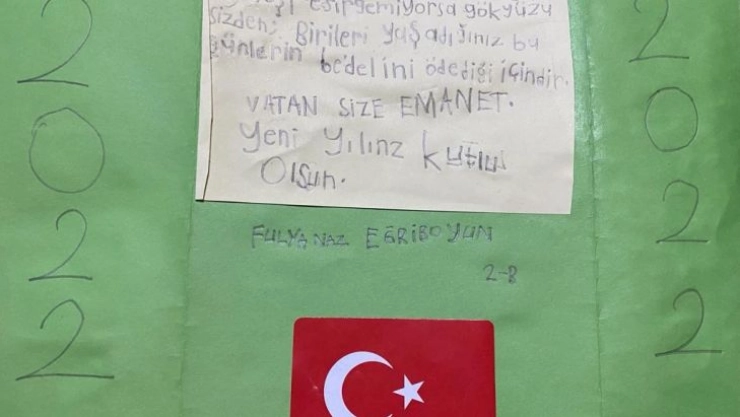 esirgemiyorsa gökyüzü
sizden; Birileri yaşadığınız bu
günlerin bedelini ödediği içindir.
VATAN SİZE EMANET.
Yeni Yılınz Kutlu
Olsun.
FULYA NAZ EĞRİBOYUN
2-B
2
0
2
2
2
0
2
2